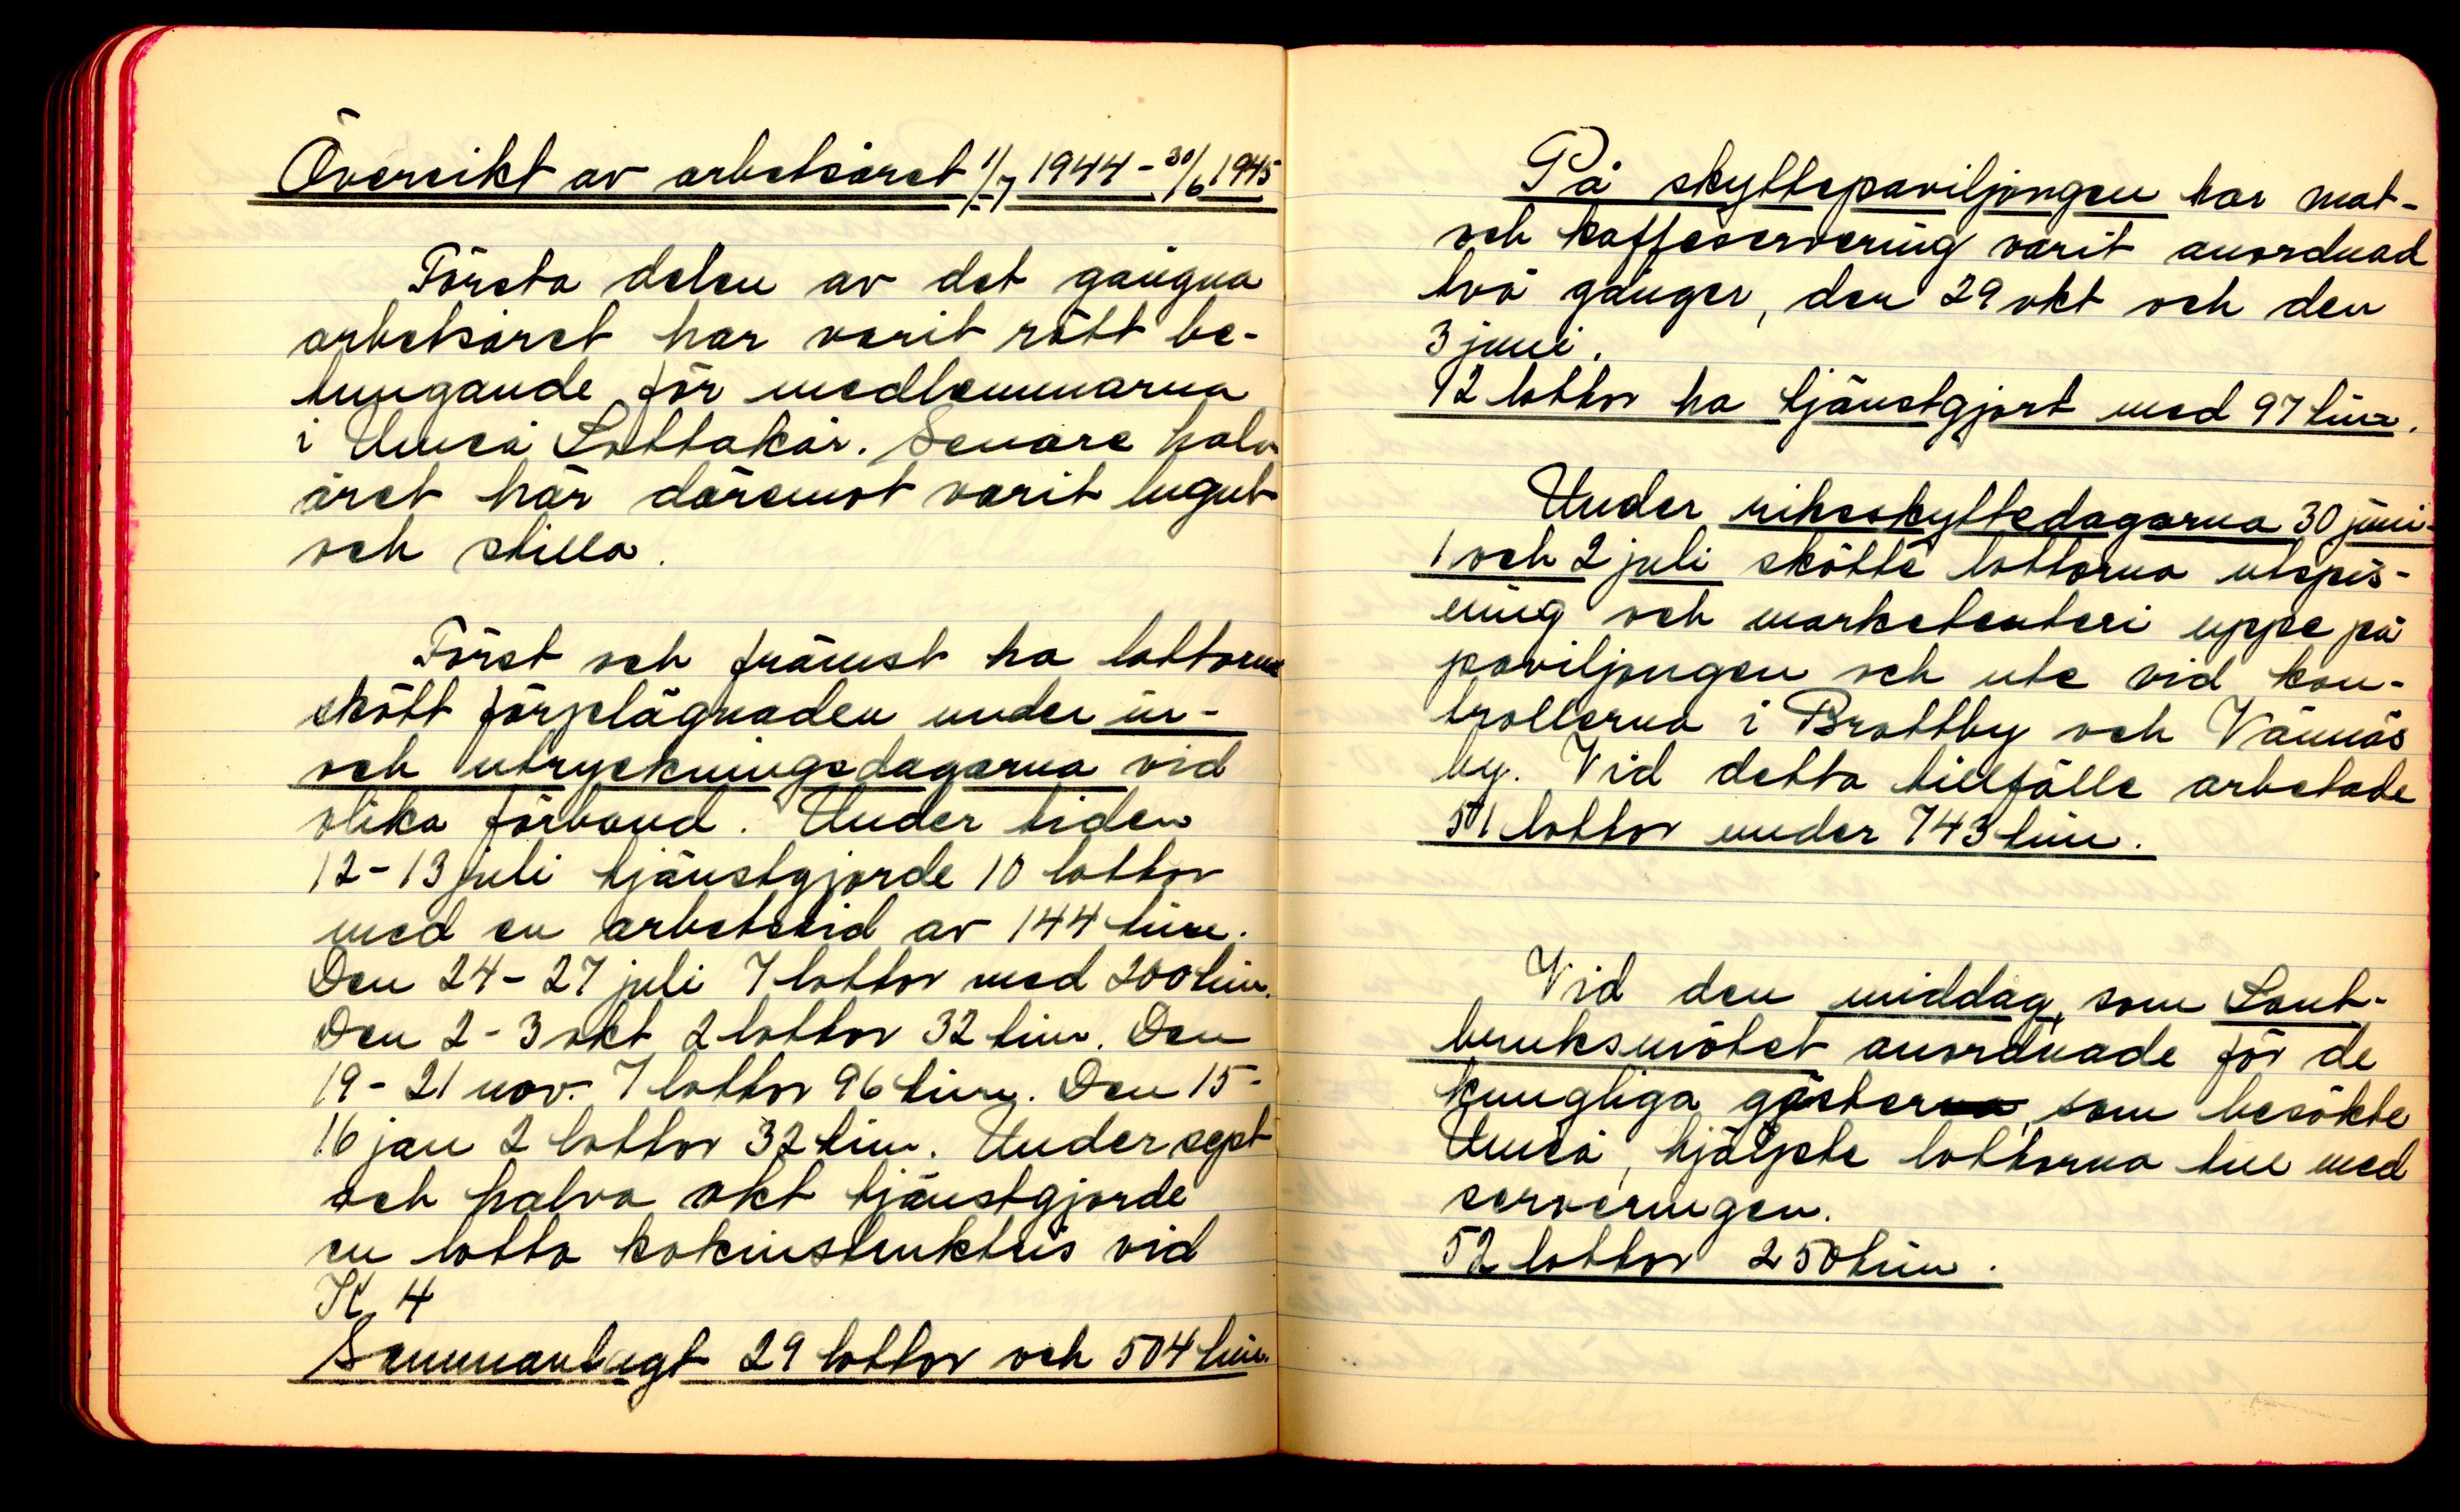 Översikt av arbetsåret 1/7 1944 - 30/6 1945
Första delen av det gångna
arbetsåret har varit rätt be-
tungande för medlemmarna
i Umeå Lottakår. Senare halv
året har däremot varit lugnt
och stilla.
Först och främst ha lottorna
skött förplägnaden under in-
och utryckningsdagarna vid
olika förband. Under tiden
12-13 juli tjänstgjorde 10 lottor
med en arbetstid av 144 tim.
Den 24-27 juli 7 lottor med 200 tim.
Den 2-3 okt 2 lottor 32 tim. Den
19-21 nov. 7 lottor 96 tim. Den 15-
16 jan 2 lottor 32 tim. Under sept
och halva okt tjänstgjorde
en lotta kokinstruktris vid
K 4
Sammanlagt 29 lottor och 504 tim.
På skyttepaviljongen har mat-
och kaffeservering varit anordnad
två gånger, den 29 okt och den
3 juni.
12 lottor ha tjänstgjort med 97 tim.
Under riksskyttedagarna 30 juni-
1 och 2 juli skötte lottorna utspis-
ning och marketenteri uppe på
paviljongen och ute vid kon-
trollerna i Brattby och Vännäs
by. Vid detta tillfälle arbetade
51 lottor under 743 tim.
Vid den middag, som Lant-
bruksmötet anordnade för de
kungliga gästerna, som besökte
Umeå, hjälpte lottorna till med
serveringen.
52 lottor 250 tim.